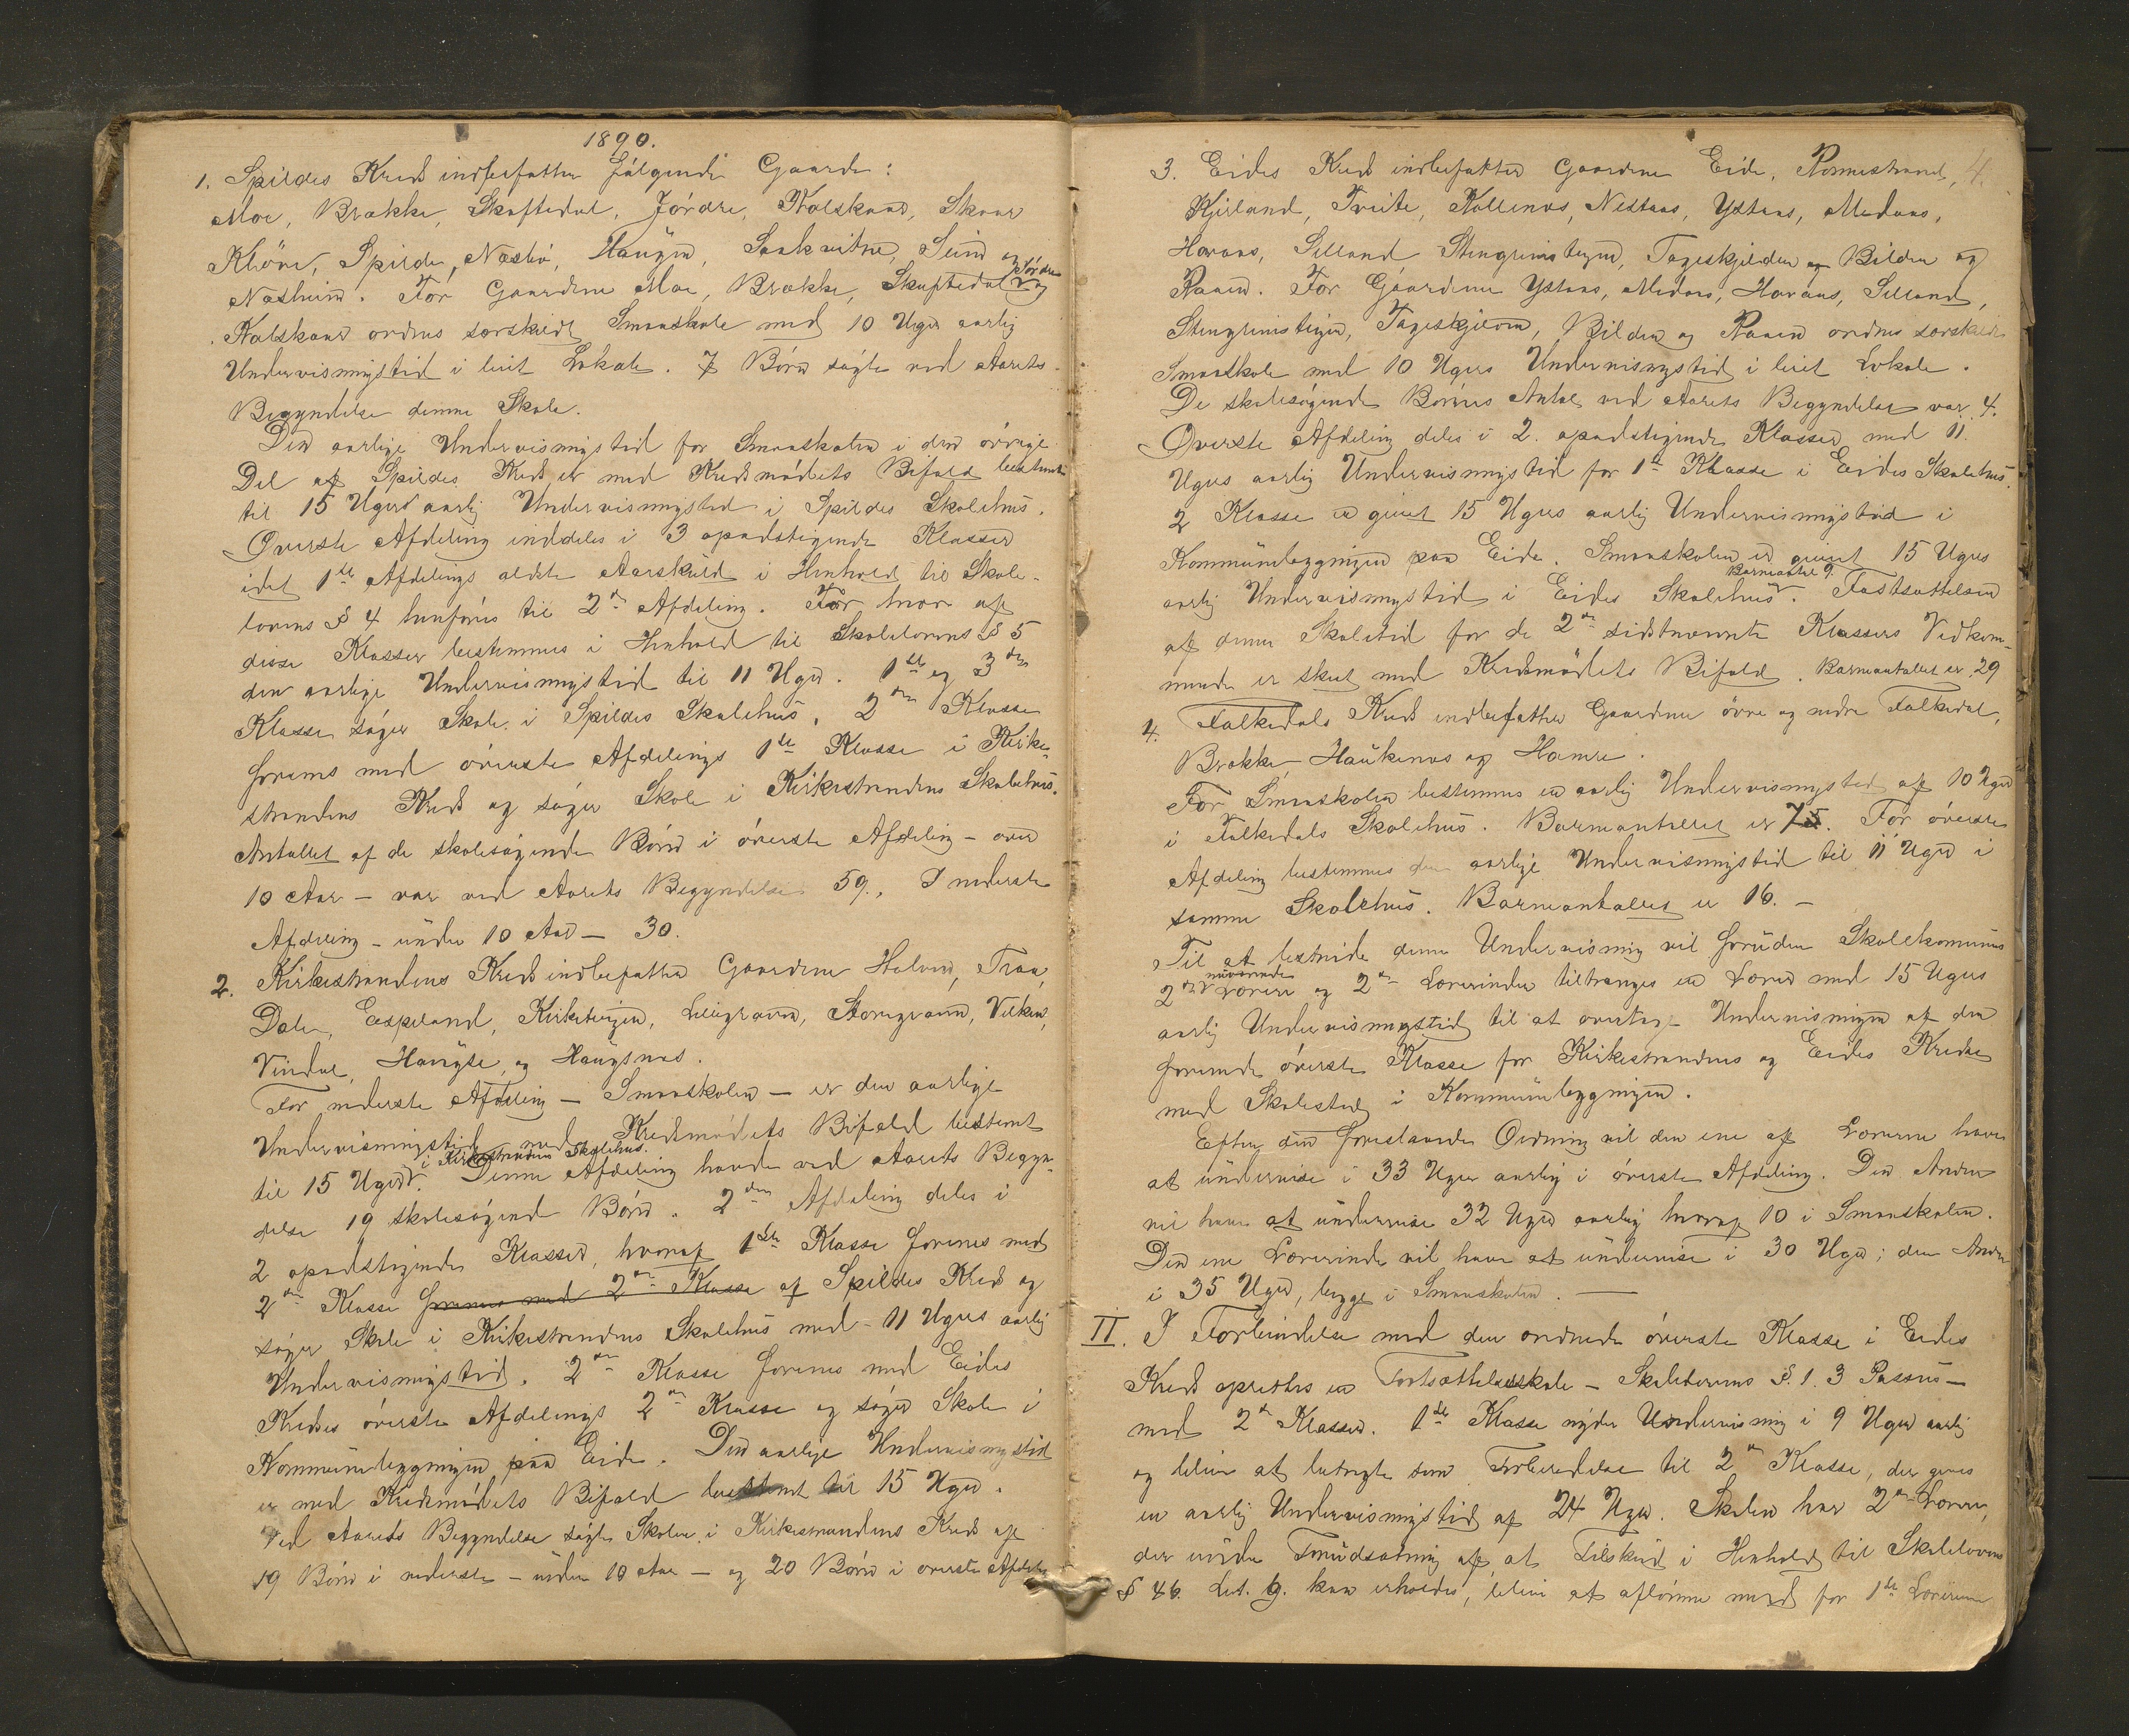 1890.
1. Spildes Kreds indbefatter følgende Gaarde:
Moe, Brække, Skaftedal, Jördre, Kolskaar, Skaar
Klöve, Spilde, Næsbö, Haugen, Saakvitne, Seim og
Næsheim. For Gaardene Moe, Brække, Skaftedal Jördre og
Kolskaar ordnes særskildt Smaaskole med 10 Uger aarlig
Undervisningstid i leiet Lokale. 7 Börn søgte ved Aarets
Begyndelse denne Skole.
Den aarlige Undervisningstid for Smaaskolen i den övrige
Del af Spildes Kreds er med Kredsmödets Bifald bestemt
til 15 Ugers aarlig Undervisningstid i Spildes Skolehus.
Øverste Afdeling inddeles i 3 opadstigende Klasser
idet 1ste Afdelings ældste Aarskuld i Henhold til Skole-
lovens § 4 henføres til 2den Afdeling. For hver af
disse Klasser bestemmes i Henhold til Skolelovens § 5
den aarlige Undervisningstid til 11 Uger. 1ste og 3die
Klasse söger Skole i Spildes Skolehus. 2den Klasse
forenes med överste Afdelings 1ste Klasse i Kirke-
strandens Kreds og söger Skole i Kirkestrandens Skolehus.
Antallet af de skolesögende Börn i överste Afdeling - over
10 Aar - var ved Aarets Begyndelse 59., I nederste
Afdeling - under 10 Aar - 30.
2. Kirkestrandens Kreds indbefatter Gaardene Holven, Traa,
Dale, Espeland, Kirketeigen, Lillegraven, Storegraven, Vilken,
Vindal, Haugse og Haugsnes.
For nederste Afdeling - Smaaskolen - er den aarlige
Undervisningstid med Kredsmödets Bifald bestemt
til 15 Uger i Kirkestrandens Skolehus. Denne Afdeling havde ved Aarets Begyn-
delse 19 skolesögende Börn. 2den Afdeling deles i
2 opadstigende Klasser, hvoraf 1ste Klasse forenes med
2den Klasse forenes med 2den Klasse af Spildes Kreds og
söger Skole i Kirkestrandens Skolehus med 11 Ugers aarlig
Undervisningstid. 2den Klasse forenes med Eides
Kredses överste Afdelings 2den Klasse og söger Skole i
Kommunebygningen paa Eide. Den aarlige Undervisningstid
er med Kredsmödets Bifald bestemt til 15 Uger.
Ved Aarets Begyndelse sögte Skolen i Kirkestrandens Kreds af
19 Börn i nederste - under 10 Aar - og 20 Börn i överste Afdeling
4.
3. Eides Kreds indbefatter Gaardene Eide,
Kjerland, Tveite, Kollenæs, Nestaas, Ystaas, Medaas,
Havaas, Selland Stengrimsteigen, Tageskjelden og Bilden og
Raaen. For Gaardene Ystaas, Medaas, Havaas, Selland,
Stengrimsteigen, Tageskjelden, Bilden og Raaen ordnes særskildt
Smaaskole med 10 Ugers Undervisningstid i leiet Lokale.
De skolesögende Börns Antal ved Aarets Begyndelse var 4.
Øverste Afdeling deles i 2. opadstigende Klasser med 11.
Ugers aarlig Undervisningstid for 1ste Klasse i Eides Skolehus.
2 Klasse er givet 15 Ugers aarlig Undervisningstid i
Kommunebygningen paa Eide. Smaaskolen er givet 15 Ugers
aarlig Undervisningstid i Eides Skolehus. Barneantal 9. Fastsættelsen
af denne Skoletid for de 2de sidstnævnte Klassers Vedkom-
mende er skeet med Kredsmödets Bifald. Barneantallet er 29
4. Folkedals Kreds indbefatter Gaardene övre og nedre Folkedal,
Brække, Haukenæs og Hamre.
For Smaaskolen bestemmes en aarlig Undervisningstid af 10 Uger
i Folkedals Skolehus. Barneantallet er 7. For överste
Afdeling bestemmes den aarlige Undervisningstid til 11 Uger i
samme Skolehus. Barneantallet er 16. -
Til at bestride denne Undervisning vil foruden Skolekommunens
2de nuværende Lærere og 2de Lærerinder tiltrænges en Lærer med 15 Ugers
aarlig Undervisningstid til at overtage Undervisningen af den
forenede överste Klasse for Kirkestrandens og Eides Kredse
med Skolested i Kommunebygningen.
Efter den foreslaaede Ordning vil den ene af Lærerne have
at undervise i 33 Uger aarlig i överste Afdeling. Den Anden
vil have at undervise 32 Uger aarlig hvoraf 10 i Smaaskolen.
Den ene Lærerinde vil have at undervise i 30 Uger; den Anden
i 35 Uger, begge i Smaaskolen. -
II. I Forbindelse med den ordnede överste Klasse i Eides
Kreds oprettes en Fortsættelsesskole - Skolelovens §. 1. 3 Passus -
med 2de Klasser. 1ste Klasse nyder Undervisning i 9 Uger aarlig
og bliver at betragte som Forberedelse til 2den Klasse, der gives
en aarlig Undervisningstid af 24 Uger. Skolen har 2de Lærere,
der under Forudsætning af at Tilskud i Henhold til Skolelovens
§ 46. Lit. g. kan erholdes, bliver at aflönne med for 1ste Læreren